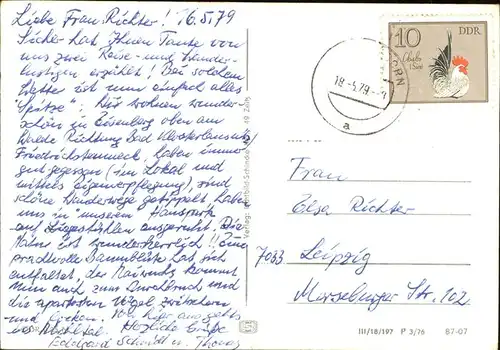 Liebe Frau Richter! 16.5.79
Sicher hat Ihnen Tante von
uns zwei Reise- und Wander-
lustigen erzählt! Bei solchem
Wetter ist nun einfach alles
"Spitze". Wir wohnen wunder-
schön in Eisenberg oben am
Walde Richtung Bad Klosterlausnitz/
Friedrichstanneck, haben immer
gut gegessen (im Lokal und
mittels Eigenverpflegung), sind
schöne Wanderwege getippelt, haben
uns in "unserem" Hauspark
auf Liegestühlen ausgeruht. Die
Natur ist wunderherrlich!! Eine
prachtvolle Baumblüte hat sich
entfaltet, der Maiwuchs kommt
nun auch zum Durchbruch und
die Vögel zwitschern
und locken. Von hier aus geht's
ins Mühltal. Herzliche Grüße
Schmidt u. Thomas
Verlag: Schincke 49 Zeitz
10 DDR
18.-5.79
a
Frau
Elsa Richter
7033 Leipzig
Merseburger Str. 102
III/18/197 P 3/76 87-07